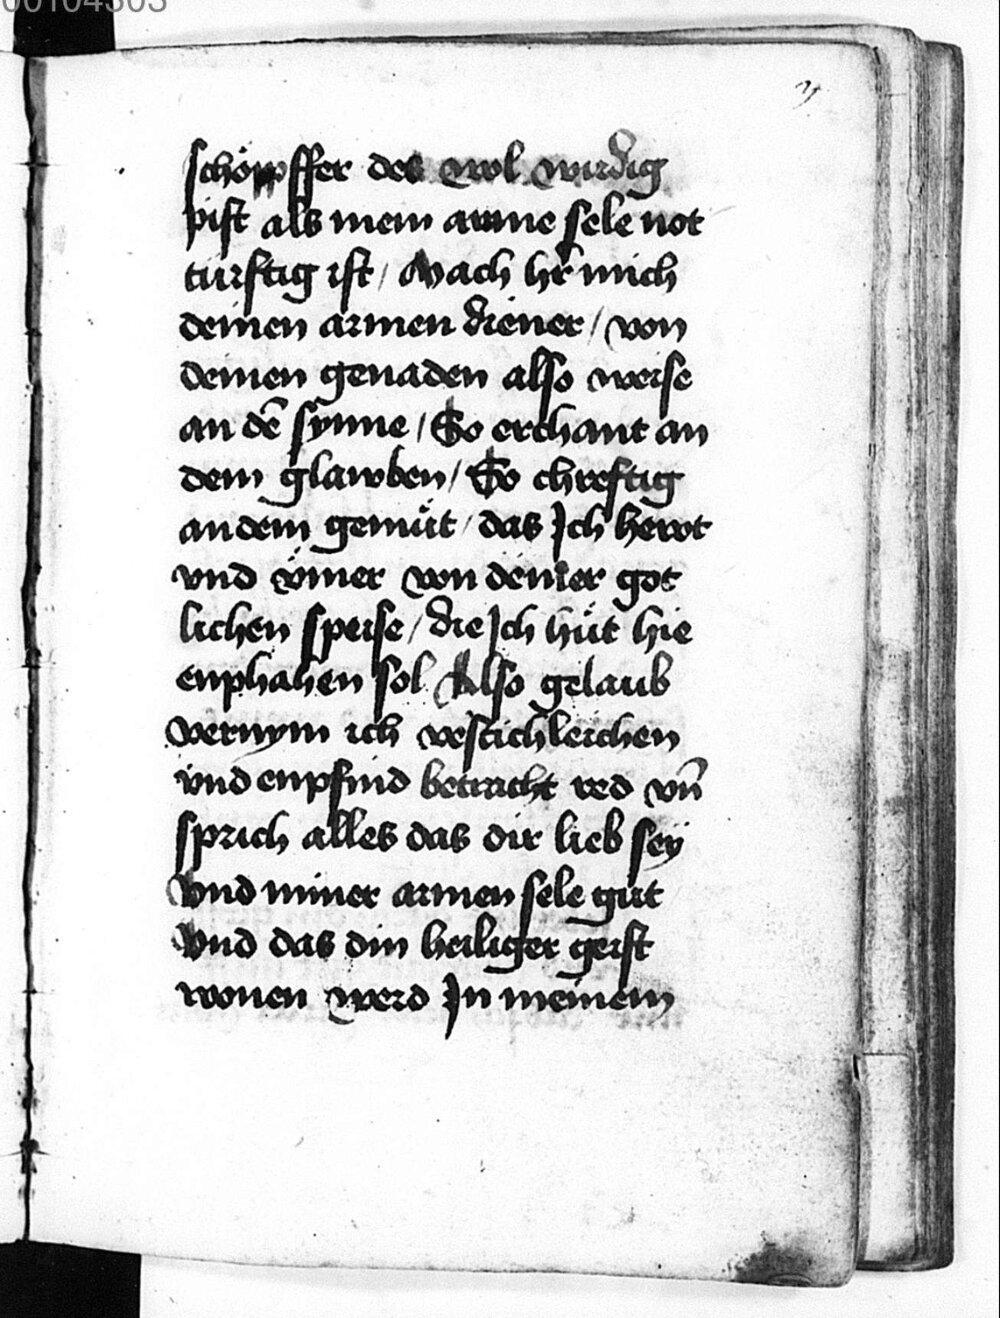 00104303
schöpffer des wol wirdig
pist als mein arme sele not
turftig ist / Mach hr̄ mich
deinen armen diener / von
deinen genaden also weise
an dē synne / So erchant an
dem glawben / So chreftig
an dem gemüt / das Ich hewt
vnd ÿmer von deiner got
lichen speise / die Ich hüt hie
enphahen sol Also gelaub
vernym ich vestichleichen
vnd enpfind betracht red vn̄
sprich alles das dir lieb sey
Vnd miner armen sele gut
Vnd das din heiliger geist
wonen werd In meinem